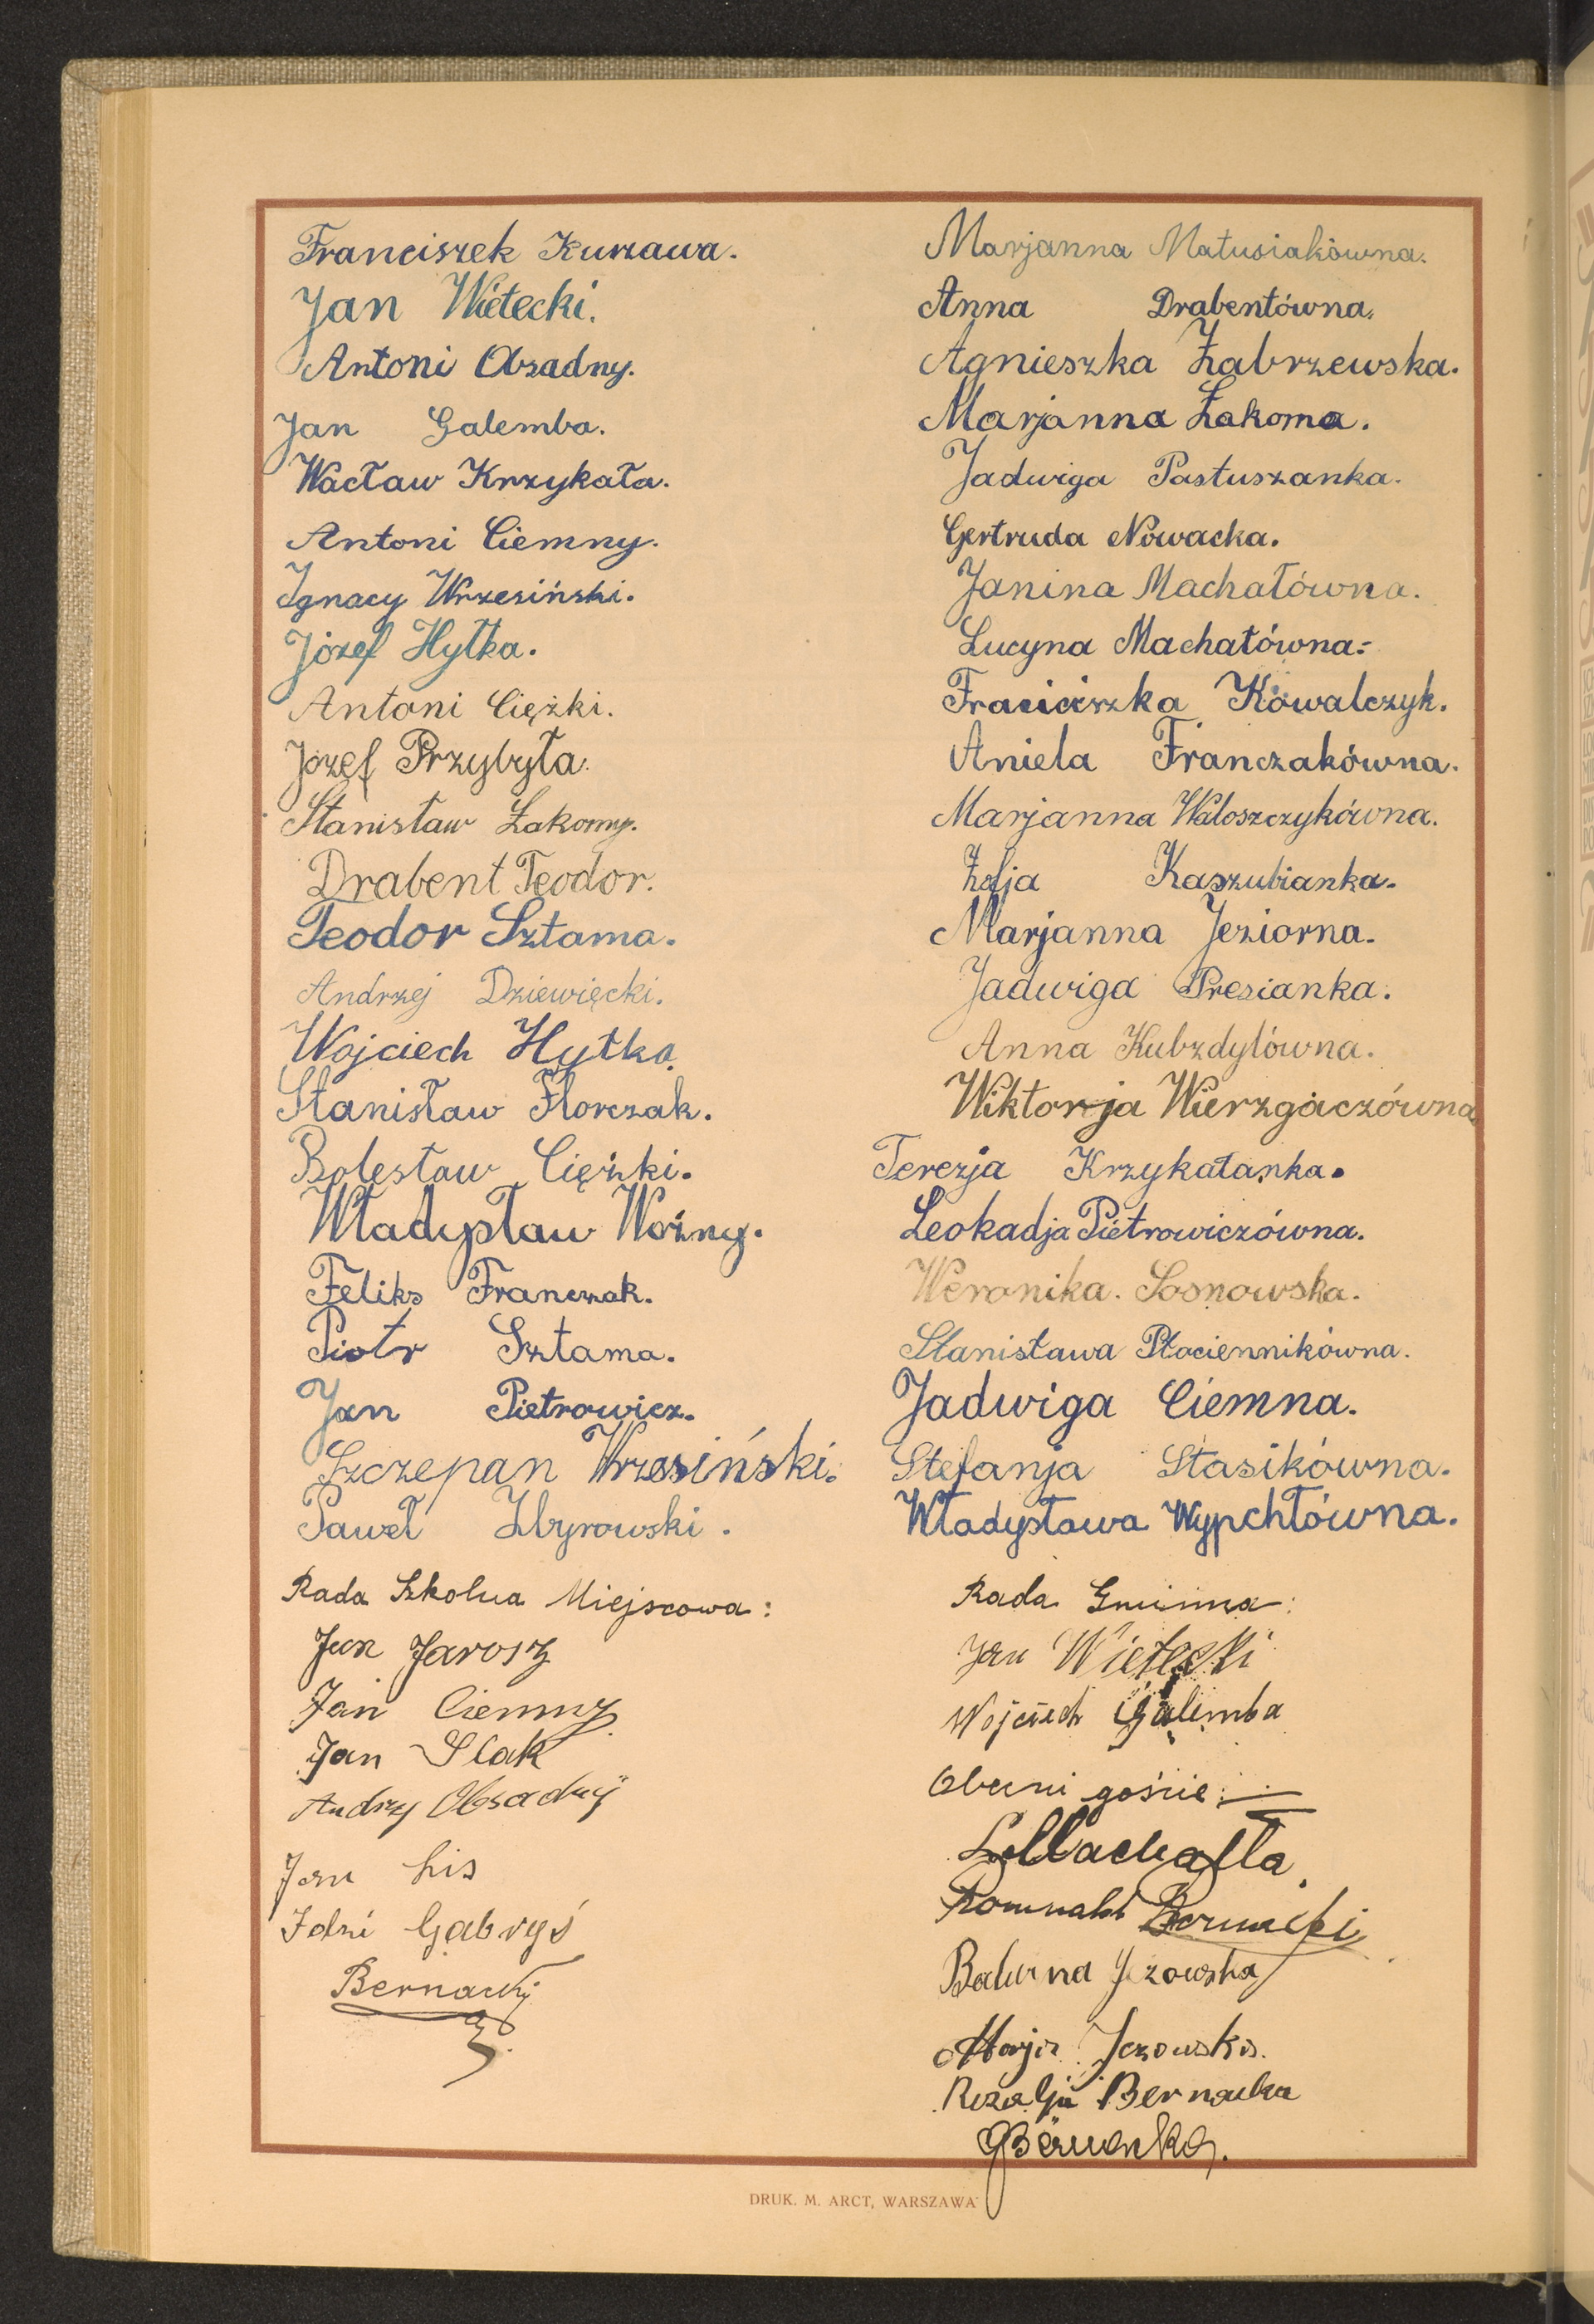 Franciszek Kurzawa.
Jan Wietecki.
Antoni Obsadny.
Jan Galemba.
Wacław Krzykała.
Antoni Ciemny.
Ignacy Wrzesiński.
Józef Hytka.
Antoni Ciężki.
Józef Przybyła.
Stanisław Łakomy.
Drabent Teodor.
Teodor Sztama.
Andrzej Dziewięcki.
Wojciech Hytka.
Stanisław Florczak.
Bolesław Ciężki.
Władysław Woźny.
Feliks Franczak.
Piotr Sztama.
Jan Pietrowicz.
Szczepan Wrzesiński.
Paweł Zbyrowski.
Rada Szkolna Miejscowa:
Jan Jarosz
Jan Ciemny
Jan Slak
Andrzej Obsadny
Jan Lis
Idzi Gabryś
Bernacki
Marjanna Matusiakówna.
Anna Drabentówna.
Agnieszka Zabrzewska.
Marjanna Łakoma.
Jadwiga Pastuszanka.
Gertruda Nowacka.
Janina Machałówna.
Lucyna Machałówna.
Franciszka Kowalczyk.
Aniela Franczakówna.
Marjanna Waloszczykówna.
Zofja Kaszubianka.
Marjanna Jeziorna.
Jadwiga Presianka.
Anna Kubzdylówna.
Wiktorja Wierzgaczówna
Terezja Krzykałanka.
Leokadja Pietrowiczówna.
Weronika. Sosnowska.
Stanisława Płociennikówna.
Jadwiga Ciemna.
Stefanja Stasikówna.
Władysława Wypchłówna.
Rada Gminna:
Jan Wietecki
Wojciech Galemba
Obecni goście:
Machałła
Romuald Bernacki
Jezowska
Marja Jezowska.
Rozalja Bernacka
DRUK. M. ARCT, WARSZAWA